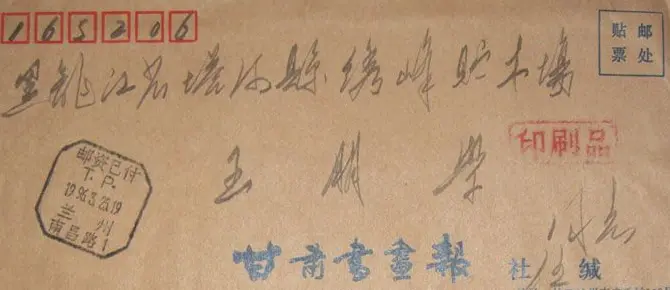 165206
贴邮
票处
黑龙江省塔河縣绣峰贮木場
印刷品
王朋學
同志
邮资已付
T.P.
1996.3.28.19
兰州
南昌路1
甘肃書畫報 社 缄